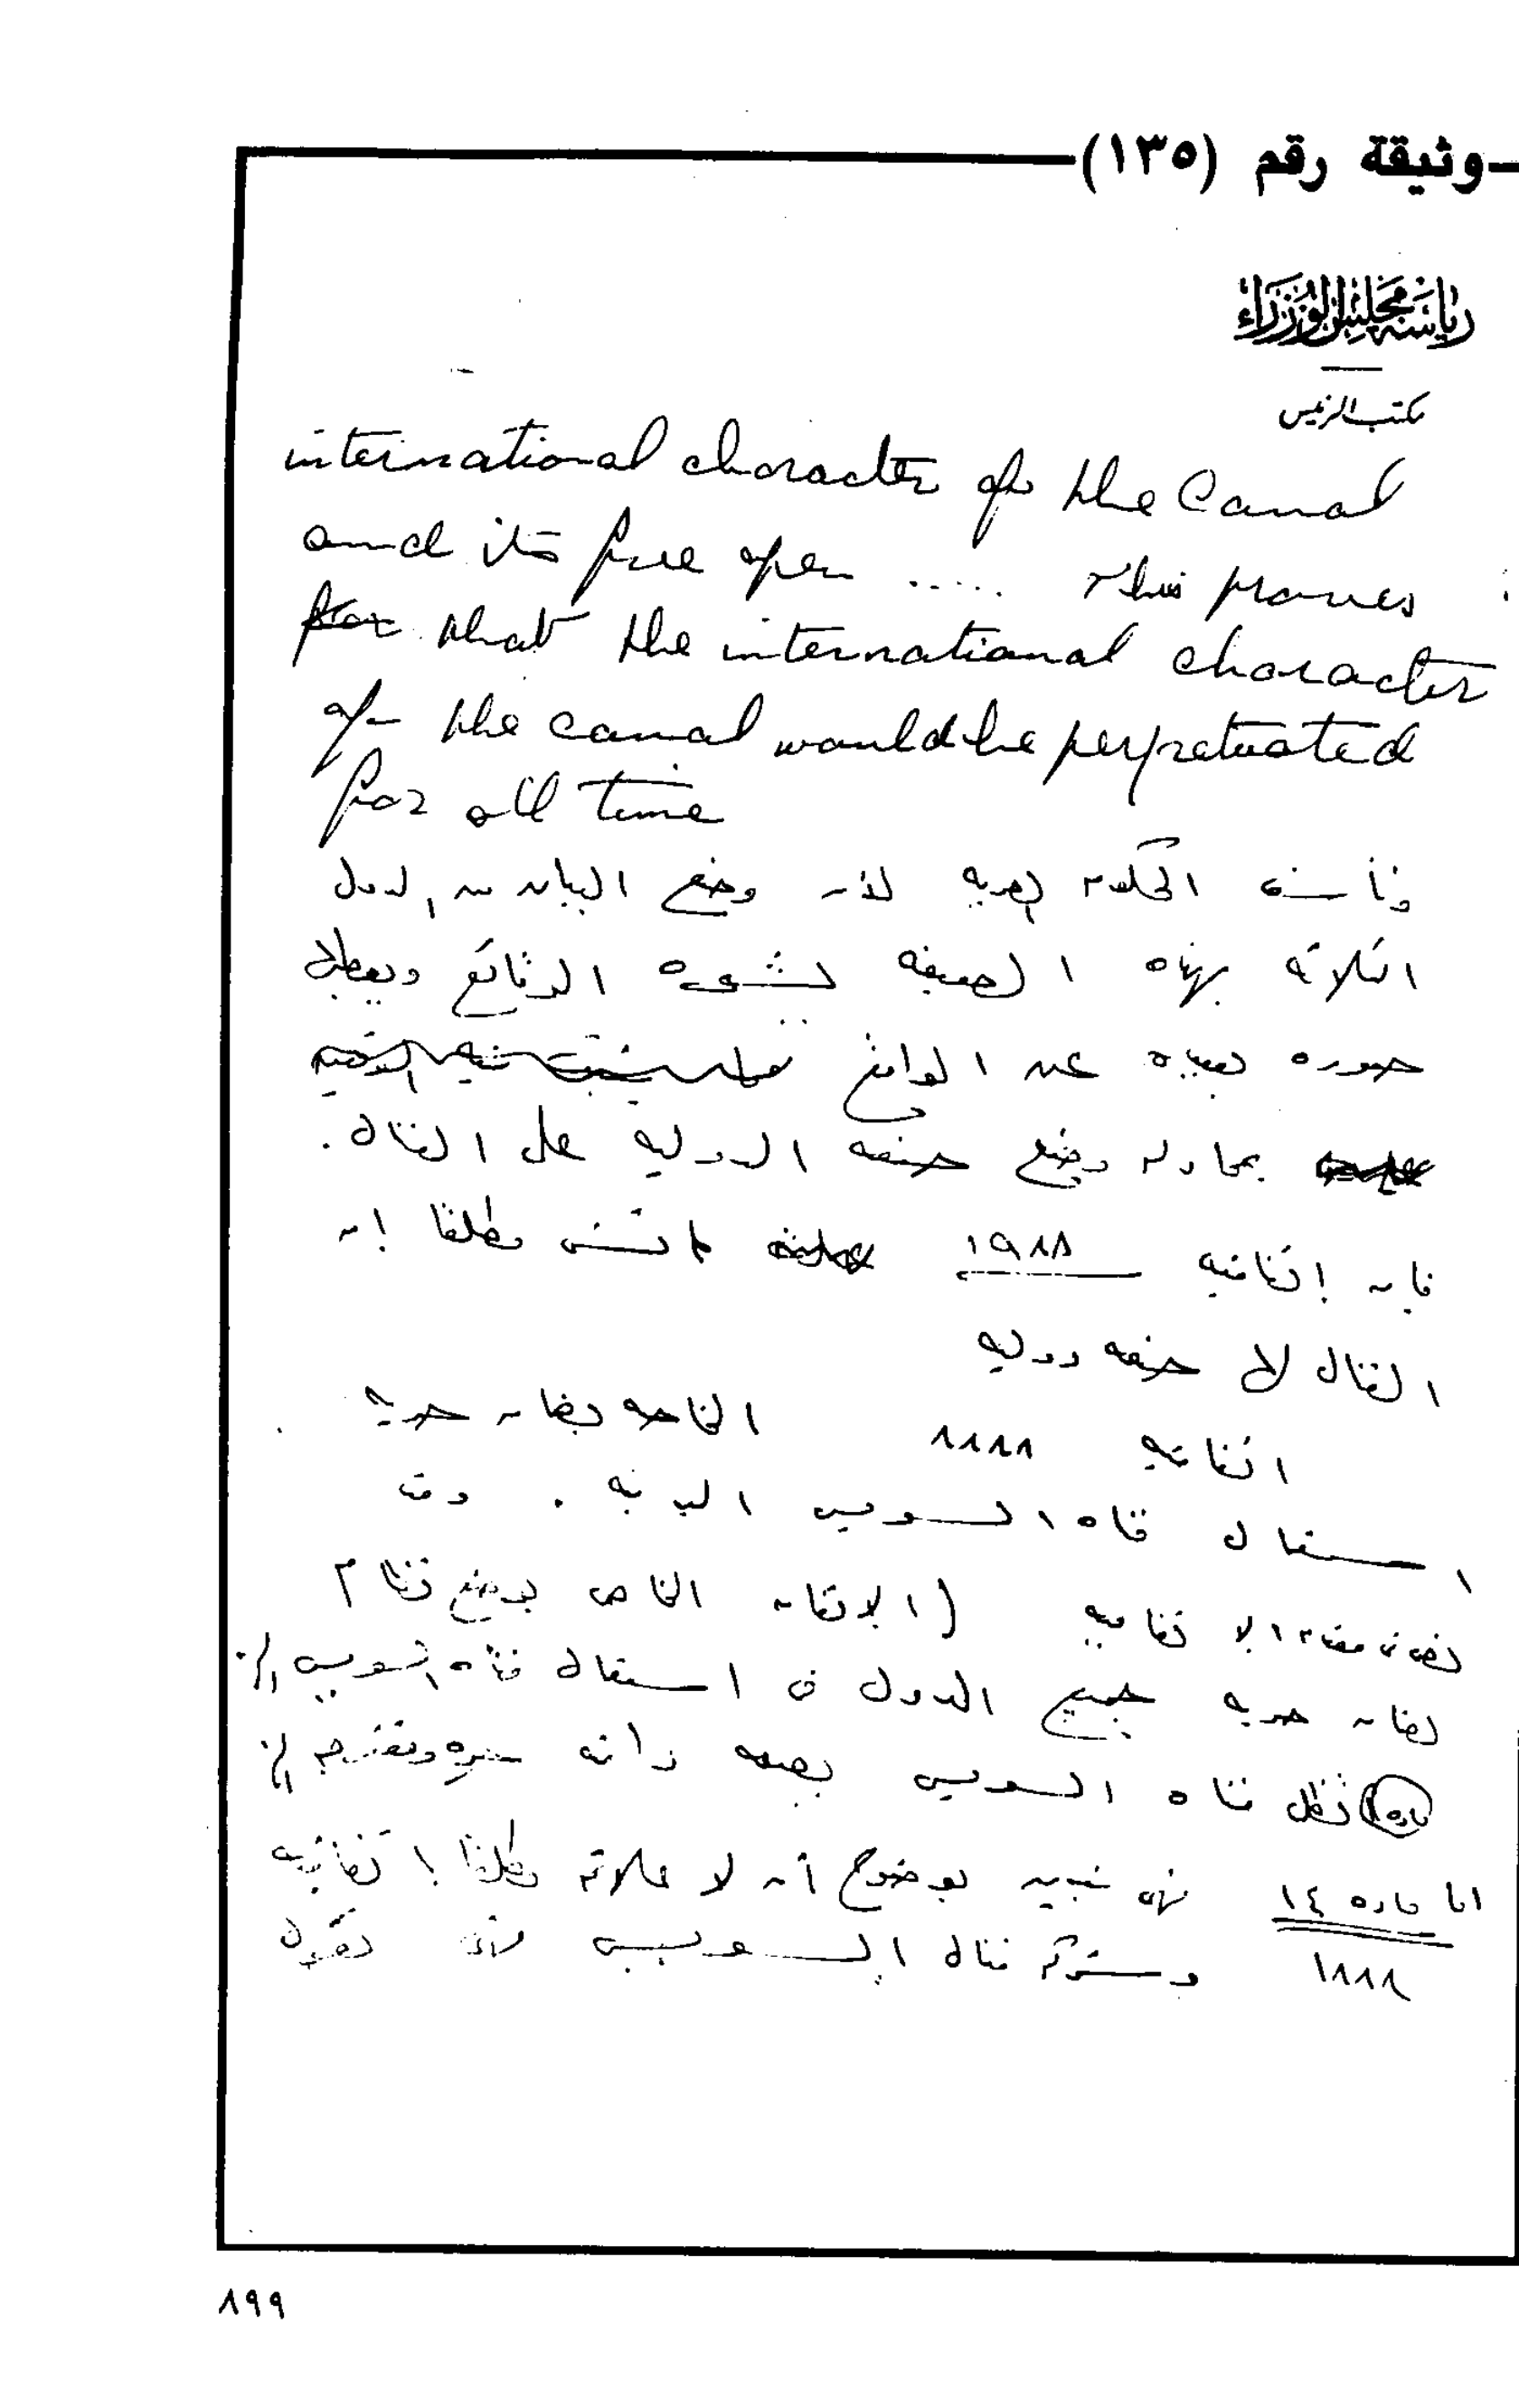 وثيقة رقم (١٣٥)
رياسة مجلس الوزراء
مكتب الرئيس
international character of the Canal
and its free open ..... This proves
for that the international character
of the canal would be perpetuated
for all time
وتأسف الحكومه المصريه لأن وضع البيان من الدول
الثلاثه بهذه الصيغه لتشويه الوقائع ويعطى
صوره بعيده عن الواقع
بمحاوله وضع صفه الدوليه على القنال.
فإن إتفاقيه ١٩٨٨ مطلقا إن
القنال له صفه دوليه
اتفاقيه ١٨٨٨ الخاصه بضمان حريه
استعمال قناه السويس البحريه . وقد
مقدمه الاتفاقيه (الاتفاق الخاص بوضع نظام
لضمان حريه جميع الدول فى استعمال قناه السويس الخ.
ماده ١ تظل قناه السويس بصفه دائمه حره ومفتوحه الخ.
اما ماده ١٤ فهى تبين بوضوح أن لا علاقه مطلقا إتفاقيه
١٨٨٨ وشركه قنال السويس فهى تقول
٨٩٩